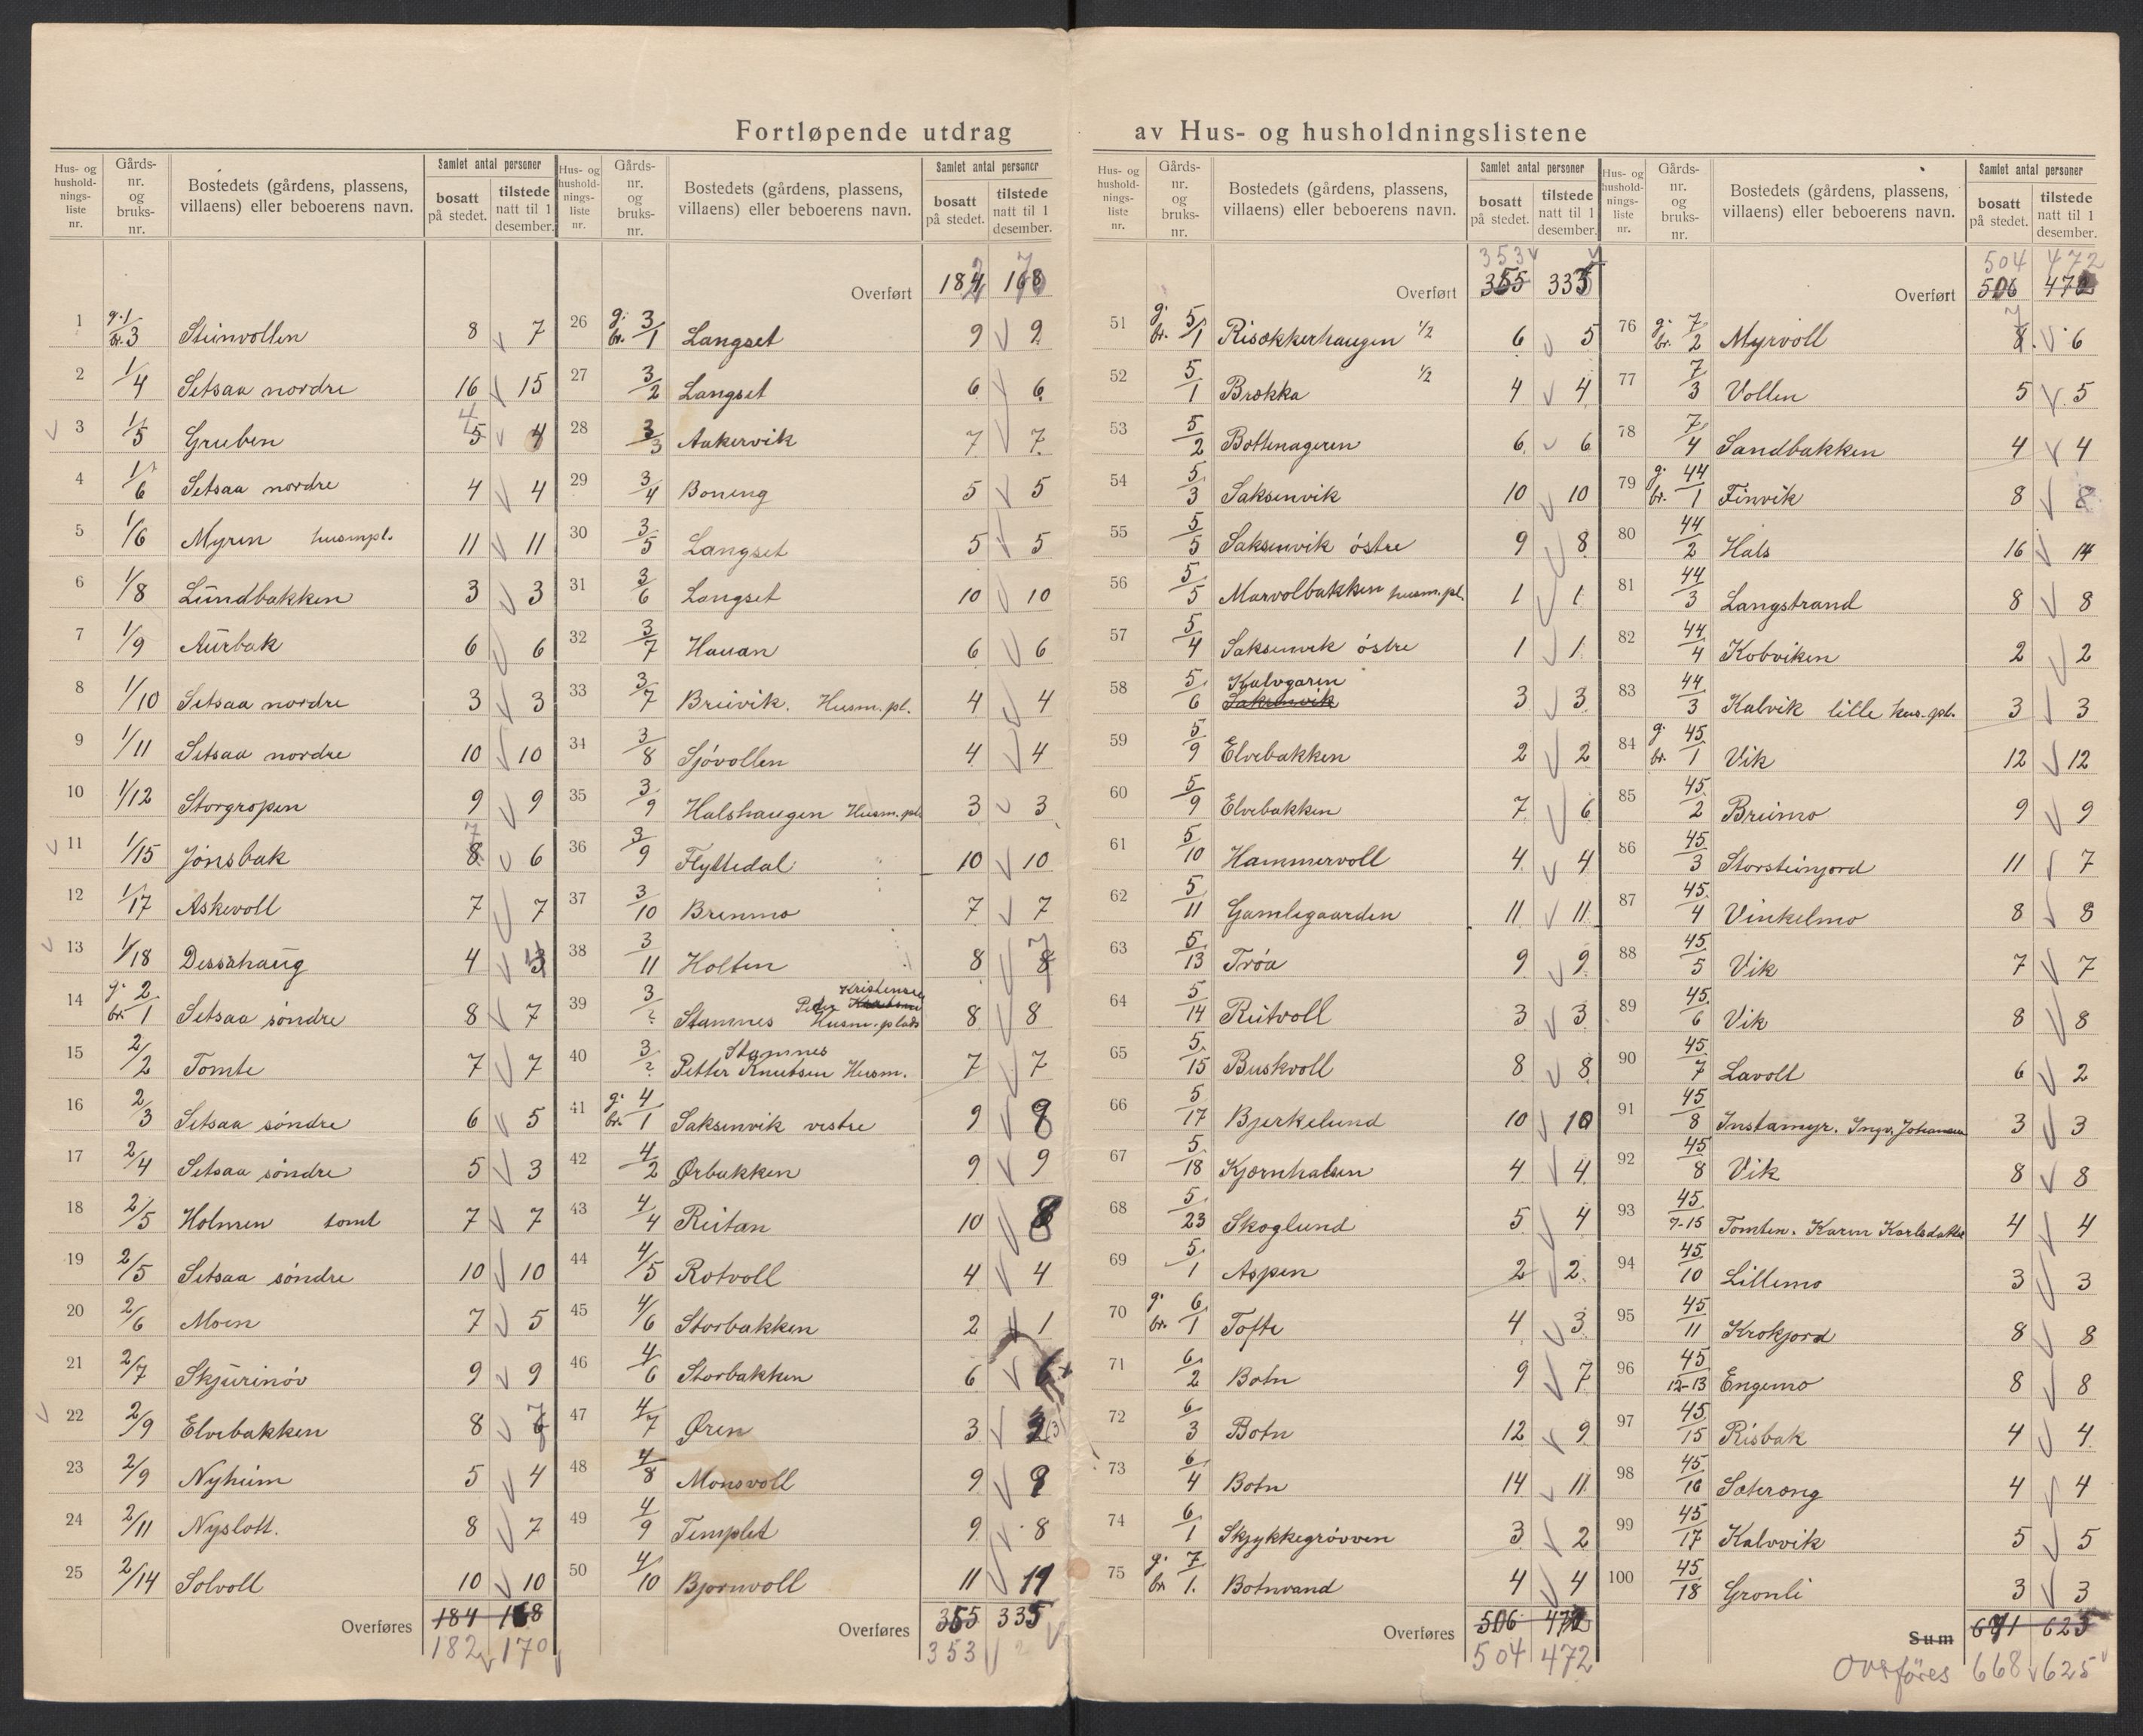 Fortløpende utdrag av Hus- og husholdningslistene
Hus- og hushold-nings-liste nr. Gårds-nr. og bruks-nr. Bostedets (gårdens, plassens, villaens) eller beboerens navn. Samlet antal personer bosatt på stedet. tilstede natt til 1 desember.
1 g. 1/br. 3 Steinvollen 8 7
2 1/4 Setsaa nordre 16 15
3 1/5 Gruben 5 4 4
4 1/6 Setsaa nordre 4 4
5 1/6 Myren husmpl. 11 11
6 1/8 Lundbakken 3 3
7 1/9 Aurbak 6 6
8 1/10 Setsaa nordre 3 3
9 1/11 Setsaa nordre 10 10
10 1/12 Storgropen 9 9
11 1/15 Jönsbak 8 7 6
12 1/17 Askevoll 7 7
13 1/18 Dessahaug 4 3
14 g. 2/br. 1 Setsaa söndre 8 7
15 2/2 Tomte 7 7
16 2/3 Setsaa söndre 6 5
17 2/4 Setsaa söndre 5 3
18 2/5 Holmen tomt 7 7
19 2/5 Setsaa söndre 10 10
20 2/6 Moen 7 5
21 2/7 Skjurinöv 9 9
22 2/9 Elvebakken 8 7
23 2/9 Nyheim 5 4
24 2/11 Nyslott. 8 7
25 2/14 Solvoll 10 10
Overføres 184 168
182 170
Hus- og hushold-nings-liste nr. Gårds-nr. og bruks-nr. Bostedets (gårdens, plassens, villaens) eller beboerens navn. Samlet antal personer bosatt på stedet. tilstede natt til 1 desember.
Overført 184 168
26 g. 3/br. 1 Langset 9 9
27 3/2 Langset 6 6
28 3/3 Aakervik 7 7
29 3/4 Boneng 5 5
30 3/5 Langset 5 5
31 3/6 Langset 10 10
32 3/7 Hauan 6 6
33 3/7 Breivik. Husm. pl. 4 4
34 3/8 Sjövollen 4 4
35 3/9 Halshaugen Husm. pl. 3 3
36 3/9 Flyttedal 10 10
37 3/10 Brenmo 7 7
38 3/11 Holten 8 8 7
Kristensen
39 3/? Stamnes Peder Husm. plads 8 8
Stamnes
40 3/? Petter Knutsen Husm. 7 7
41 g. 4/br. 1 Saksenvik vestre 9 8
42 4/2 Ørbakken 9 9
43 4/4 Reitan 10 8
44 4/5 Rotvoll 4 4
45 4/6 Storbakken 2 1
46 4/6 Storbakken 6 6
47 4/7 Øren 3 (3)
48 4/8 Monsvoll 9 9
49 4/9 Templet 9 8
50 4/10 Bjørnvoll 11 11
Overføres 355 335
353
Hus- og hushold-nings-liste nr. Gårds-nr. og bruks-nr. Bostedets (gårdens, plassens, villaens) eller beboerens navn. Samlet antal personer bosatt på stedet. tilstede natt til 1 desember.
353
Overført 355 335
51 g. 5/br. 1 Risökkerhaugen 1/2 6 5
52 5/1 Brökka 1/2 4 4
53 5/2 Bottenageren 6 6
54 5/3 Saksenvik 10 10
55 5/5 Saksenvik östre 9 8
56 5/5 Marvolbakken husm. pl. 1 1
57 5/4 Saksenvik östre 1 1
58 5/6 Kalvgaren Saksenvik 3 3
59 5/9 Elvebakken 2 2
60 5/9 Elvebakken 7 6
61 5/10 Hammervoll 4 4
62 5/11 Gamlegaarden 11 11
63 5/13 Tröa 9 9
64 5/14 Reitvoll 3 3
65 5/15 Buskvoll 8 8
66 5/17 Bjerkelund 10 10
67 5/18 Kjörnhalsen 4 4
68 5/23 Skoglund 5 4
69 5/1 Aspen 2 2
70 g. 6/br. 1 Tofte 4 3
71 6/2 Botn 9 7
72 6/3 Botn 12 9
73 6/4 Botn 14 11
74 6/1 Skjykkegröven 3 2
75 g. 7/br. 1. Botnvand 4 4
Overføres 506 472
504 472
Hus- og hushold-nings-liste nr. Gårds-nr. og bruks-nr. Bostedets (gårdens, plassens, villaens) eller beboerens navn. Samlet antal personer bosatt på stedet. tilstede natt til 1 desember.
504 472
Overført 506 472
76 g. 7/br. 2 Myrvoll 8 7 6
77 7/3 Vollen 5 5
78 7/4 Sandbakken 4 4
79 g. 44/br. 1 Finvik 8 8
80 44/2 Hals 16 14
81 44/3 Langstrand 8 8
82 44/4 Kobviken 2 2
83 44/3 Kalvik lille hus. pl. 3 3
84 g. 45/br. 1 Vik 12 12
85 45/2 Breimo 9 9
86 45/3 Storsteinjord 11 7
87 45/4 Vinkelmo 8 8
88 45/5 Vik 7 7
89 45/6 Vik 8 8
90 45/7 Lavoll 6 2
91 45/8 Instamyr. Ingv. Johansen 3 3
92 45/8 Vik 8 8
93 45/7-15 Tomten. Karen Karlsdatter 4 4
94 45/10 Lillemo 3 3
95 45/11 Krokjord 8 8
96 45/12-13 Engemo 8 8
97 45/15 Risbak 4 4
98 45/16 Sæterong 4 4
99 45/17 Kalvvik 5 5
100 45/18 Grönli 3 3
Sum 671 625
Overföres 668 625